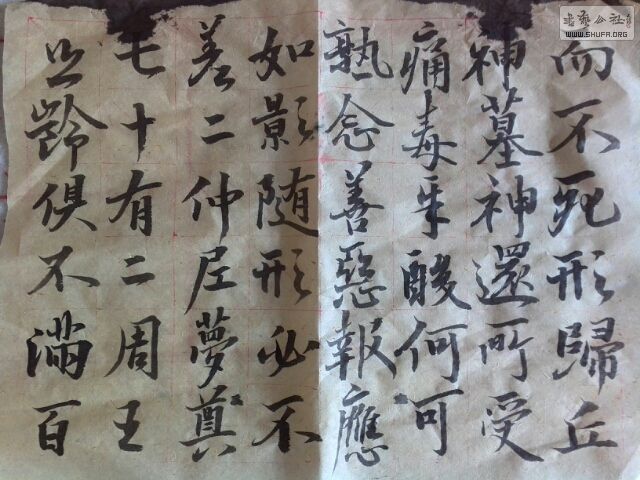 而不死形歸丘
神墓神還所受
痛毒辛酸何可
熟念善惡報應
如影随形必不
差二仲尼夢奠
七十有二周王
齡俱不滿百
書藝公社
WWW.SHUFA.ORG